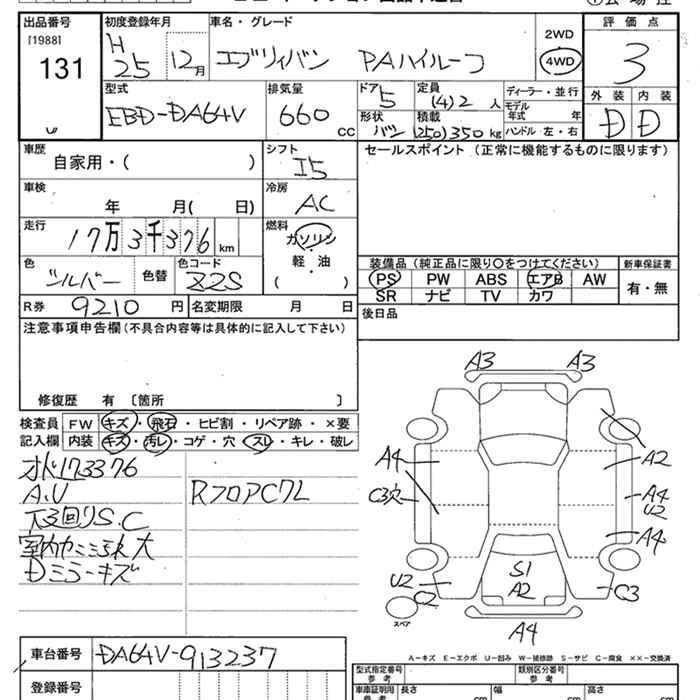 出品番号 初度登録年月 車名・グレード 評価点
[1988] H 2WD
131 25 12月 エブリィバン PAハイルーフ 4WD 3
型式 排気量 ドア 定員 ディーラー・並行 外装 内装
EBD-DA64V 660 CC 5 (4)2人 モデル年式 年 D D
形状 積載 ハンドル 左・右
バン (250)350kg
車歴 シフト セールスポイント(正常に機能するものに限ります)
自家用・( ) I5
車検 冷房
年 月( 日) AC
走行 燃料
17万3千376km ガソリン
軽・油
( )
色 色替 色コード 装備品(純正品に限り○をつけてください) 新車保証書
シルバー Z2S PS PW ABS エアB AW 有・無
SR ナビ TV カワ
R券 9210円 名変期限 月 日 後日品
注意事項申告欄(不具合内容等は具体的に記入して下さい)
修復歴 有 〔箇所 〕
検査員 FW キズ・飛石・ヒビ割・リペア跡・×要
記入欄 内装 キズ・汚レ・コゲ・穴・スレ・キレ・破レ
173376
A.U RフロアCフL
下回りS.C
室内カ 大
Dミラーキズ
A3 A3
A4 A2
C3穴 A4
U2
A4
S1
U2 A2 C3
C2
スペア
A4
A-キズ E-エクボ U-凹み W-補修跡 S-サビ C-腐食 ××-交換済
車台番号 DA64V-913237 型式指定番号 参考 類別区分番号 参考
登録番号 車庫証明用 参考 長さ cm 幅 cm 高さ cm